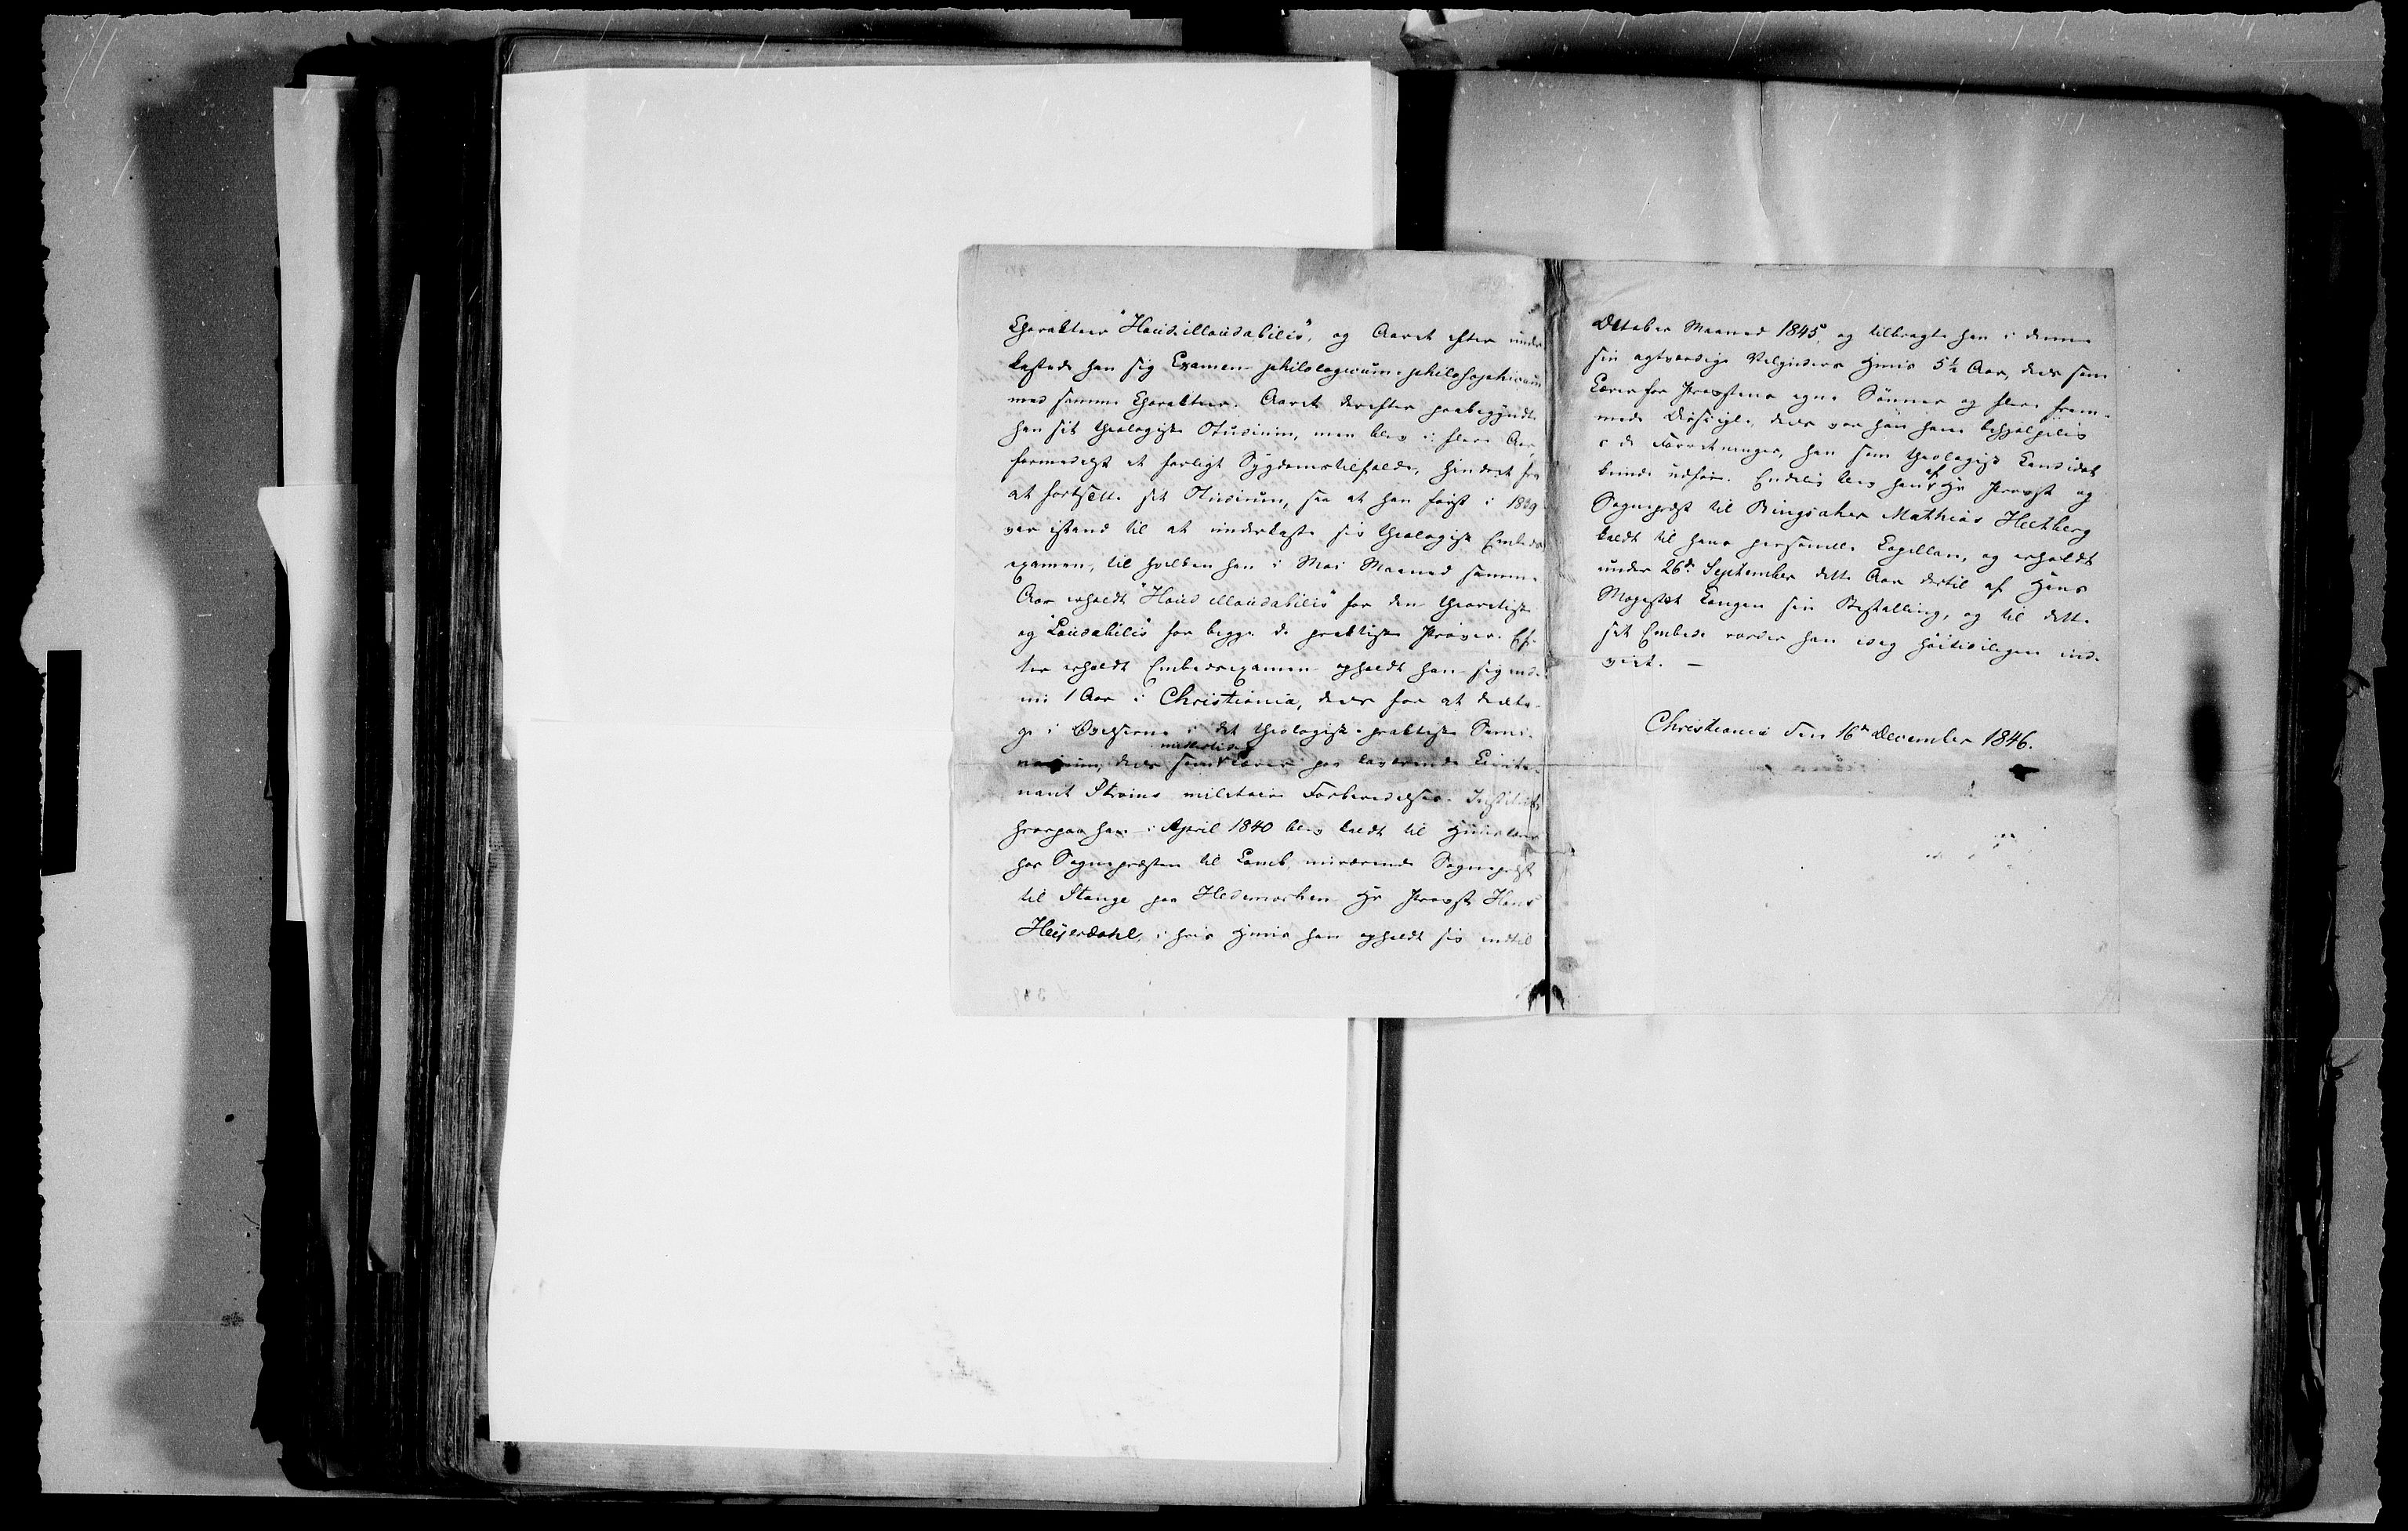 Charakteer "Haudillaudabilis", og Aaret efter under
kastede han sig Examen philologicum-philosophicum
med samme Charakteer. Aaret derefter paabegyndte
han sit theologiske Studium, men blev i flere Aar,
formedelst et farligt Sygdomstilfælde, hindret fra
at fortsætte sit Studium, saa at han først i 1839
var istand til at underkaste sig theologisk Embeds
examen, til hvilken han i Mai Maaned samme
Aar erholdt "Haud illaudabilis" for den theoretiske
og "Laudabilis" for begge de praktiske Prøver. Ef-
ter erholdt Embedsexamen opholdt han sig end-
nu 1 Aar i Christiania, deels for at deelta-
ge i Øvelserne i det theologisk-praktiske Semi-
narium, deels som midlertidig Lærer paa daværende Lieute-
nant Strøms militaire Forberedelses-Institut,
hvorpaa han i April 1840 blev kaldt til Huuslærer
hos Sognepræsten til Lomb, nuværende Sognepræst
til Stange paa Hedemarken Hr Provst Hans
Heijerdahl, i hvis Huus han opholdt sig indtil
October Maaned 1845, og tilbragte han i denne
sin agtværdige Velynders Huus 5½ Aar, deels som
Lærer for Provstens egne Sønner og flere frem-
mede Disciple, deels var han ham behjælpelig
i de Forretninger, han som theologisk Candidat
kunde udføre. Endelig blev han af Hr Provst og
Sognepræst til Ringsaker Mathias Heltberg
kaldt til hans personelle Capellan, og erholdt
under 26de September dette Aar dertil af Hans
Majestæt Kongen sin Bestalling, og til dette
sit Embede vorder han idag høitideligen ind-
viet. —
Christiania den 16de December 1846.